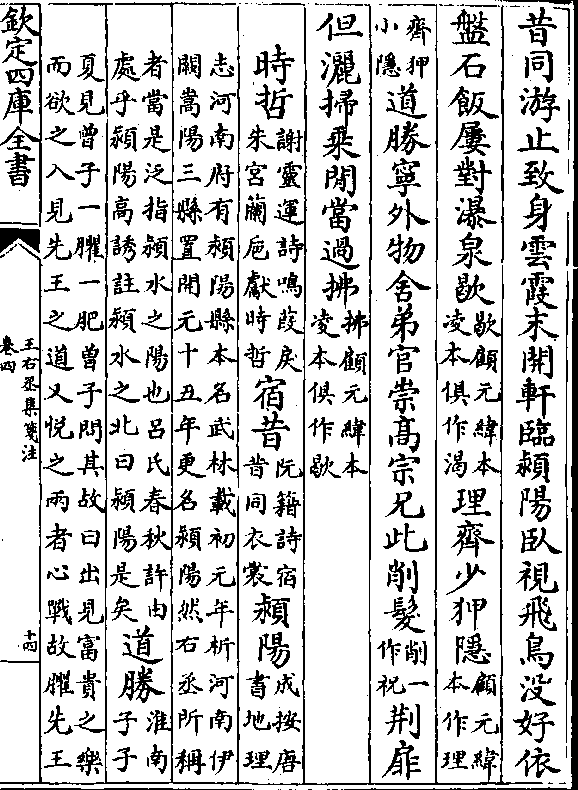 昔同游止致身雲霞末開軒臨潁陽臥視飛鳥没好依
盤石飯屢對瀑泉歇歇顧元緯本凌本俱作渴理齊少狎隱顧元緯本作理
齊狎小隱道勝寧外物舍弟官崇髙宗兄此削髮削一作祝荆扉
但灑掃乗閒當過拂拂顧元緯本凌本俱作歇
時哲謝靈運詩鳴葭戾朱宮蘭巵獻時哲宿昔阮籍詩宿昔同衣裳潁陽成按唐書地理
志河南府有潁陽縣本名武林載初元年析河南伊
闕嵩陽三縣置開元十五年更名潁陽然右丞所稱
者當是泛指潁水之陽也吕氏春秋許由處乎潁陽高誘註潁水之北曰潁陽是矣道勝淮南子子
夏見曾子一臞一肥曾子問其故曰出見富貴之樂
而欲之入見先王之道又悦之兩者心戰故臞先王
欽定四庫全書
王右丞集箋注
卷四
十四